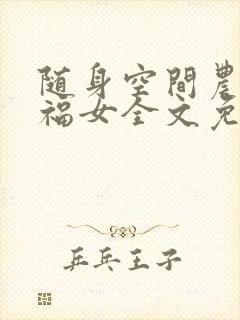 随身空間農
福女全文免
乒乓王子